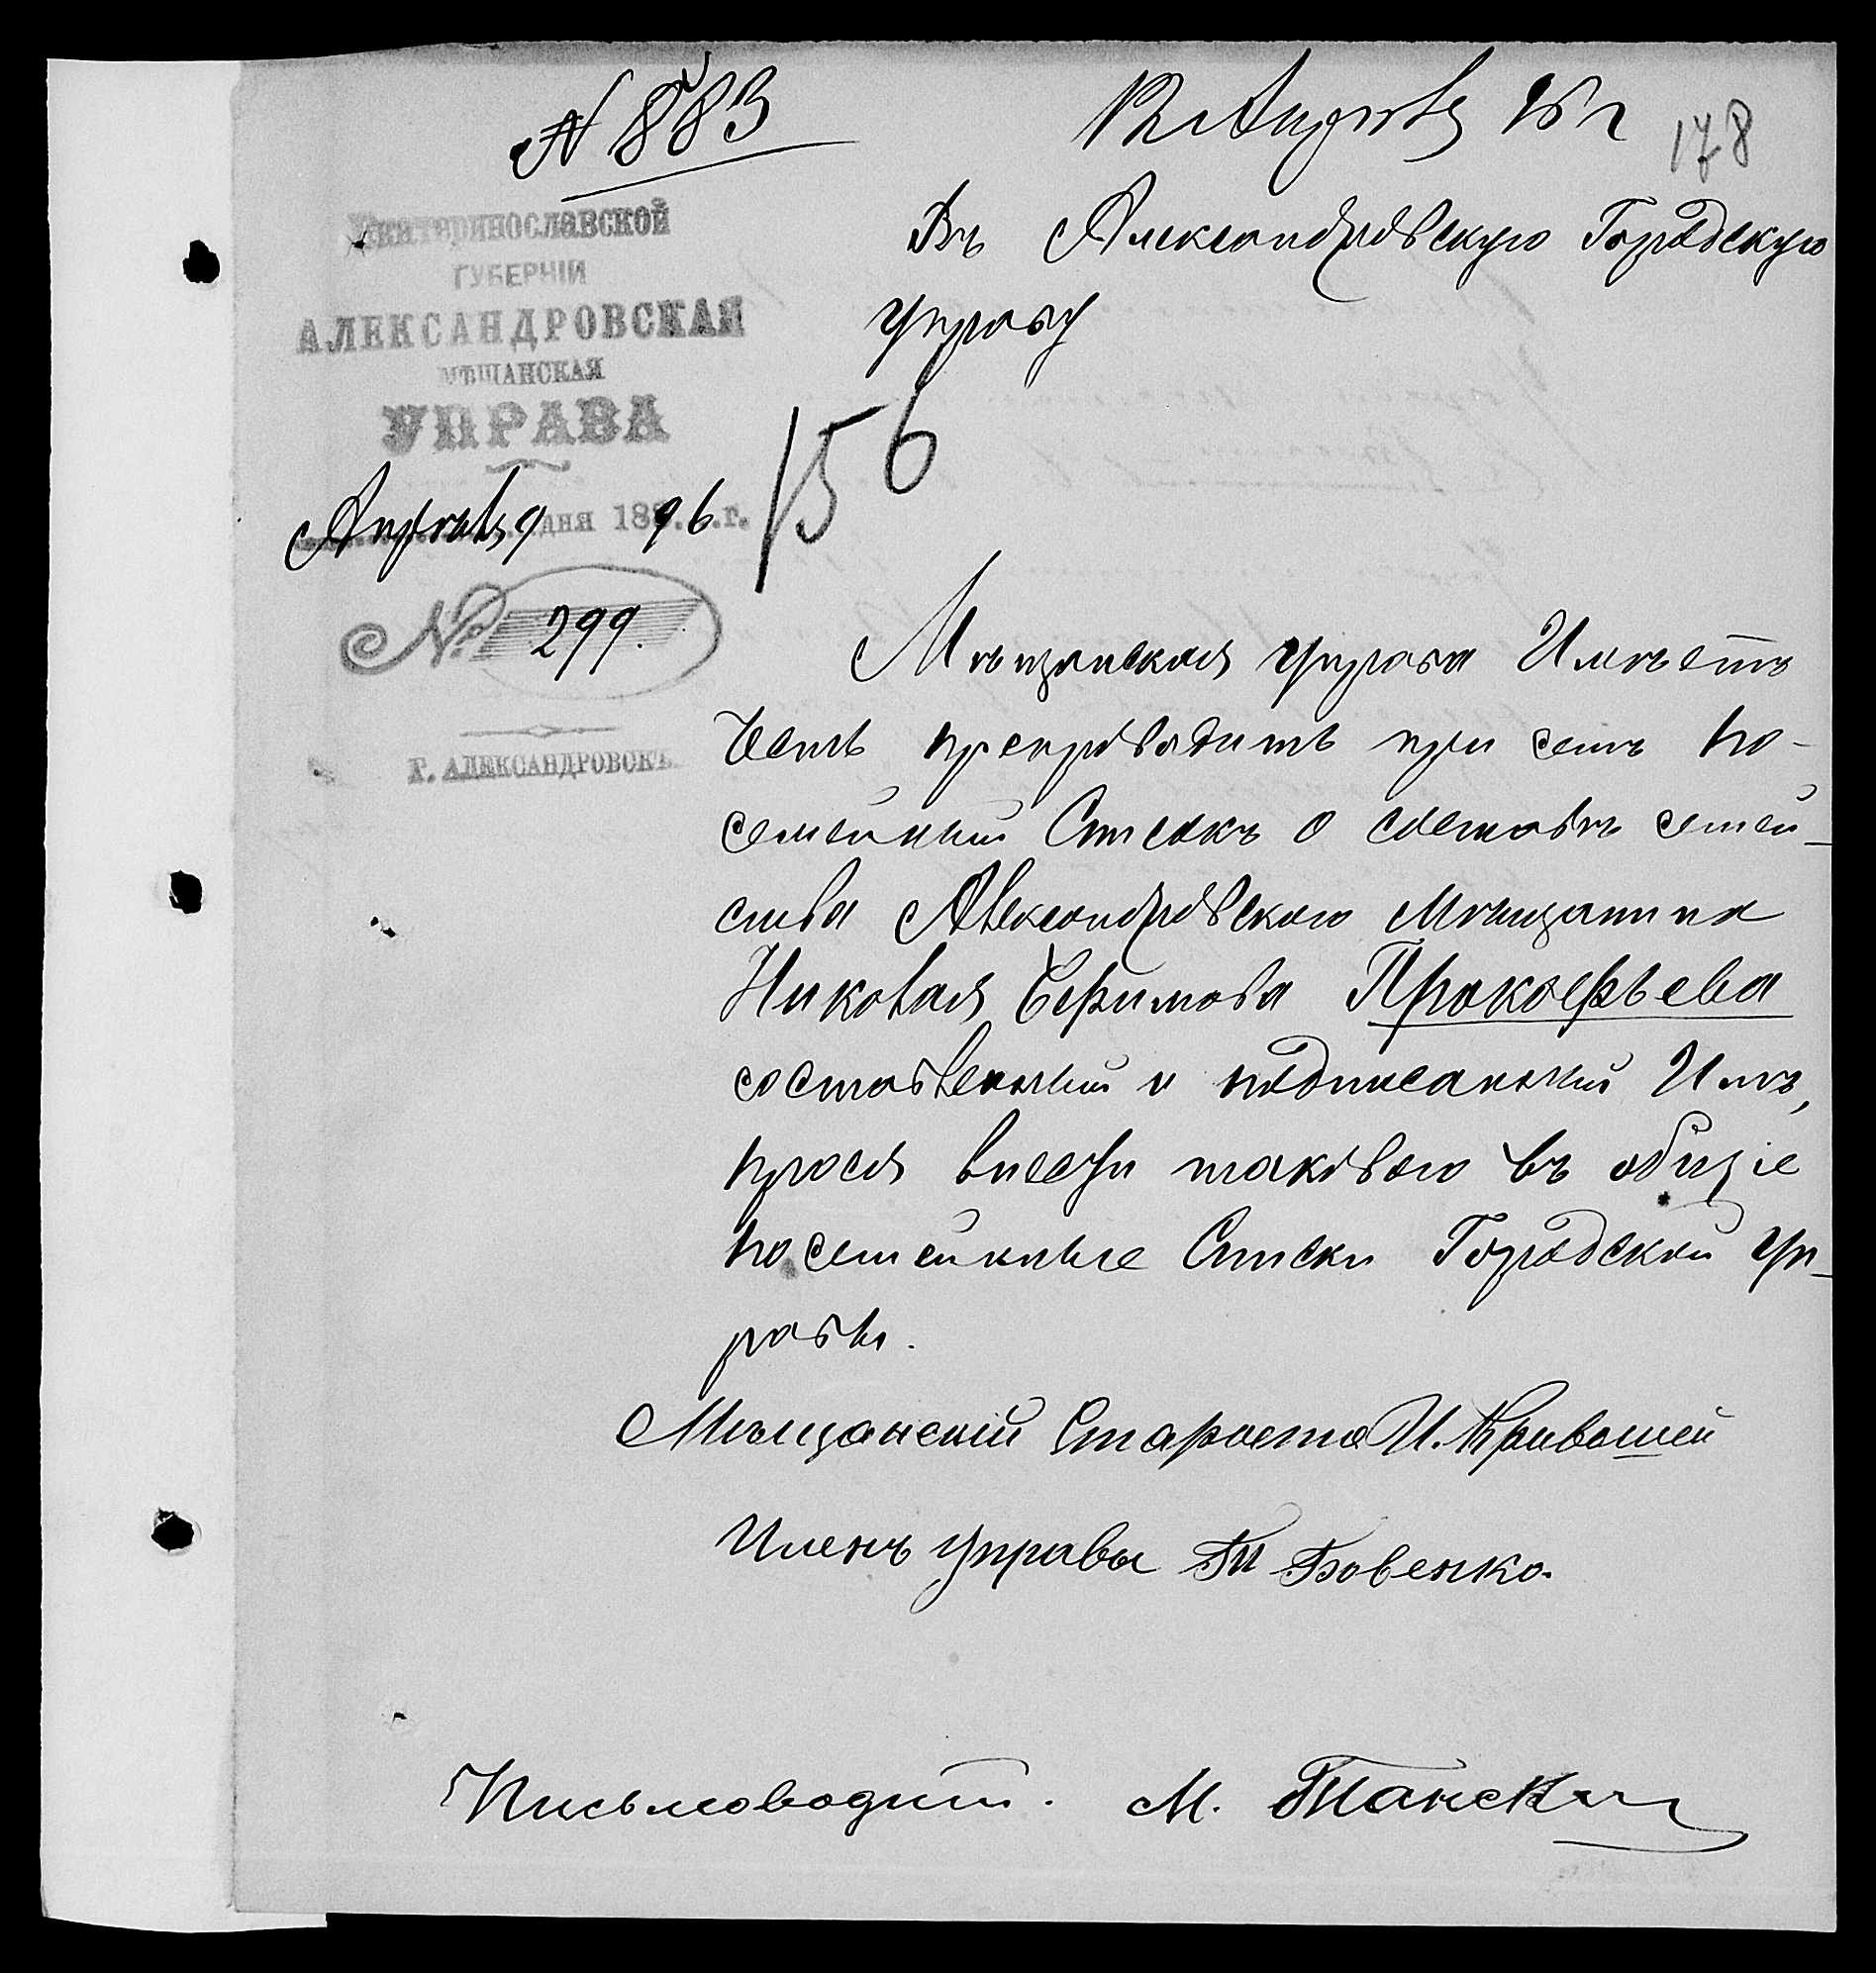 № 883
12 Апрѣля 96 г
178
Екатеринославской
ГУБЕРНІИ
АЛЕКСАНДРОВСКАЯ
МѢЩАНСКАЯ
УПРАВА
Апрѣля 9 дня 1896 г.
№ 299.
Г. АЛЕКСАНДРОВСКЪ
Въ Александровскую Городскую
Управу
156
Мѣщанская управа Имѣетъ
честь препроводить при семъ по-
семейный Списокъ о составѣ семей-
ства Александровского Мѣщанина
Николая Ефимова Прокофьева
составленный и подписанный Имъ,
прося внести такового въ общіе
посемейные Списки Городской Уп-
равы.
Мѣщанскій Староста И. Кривошей
Членъ Управы П Бовенко.
Письмоводит. М.